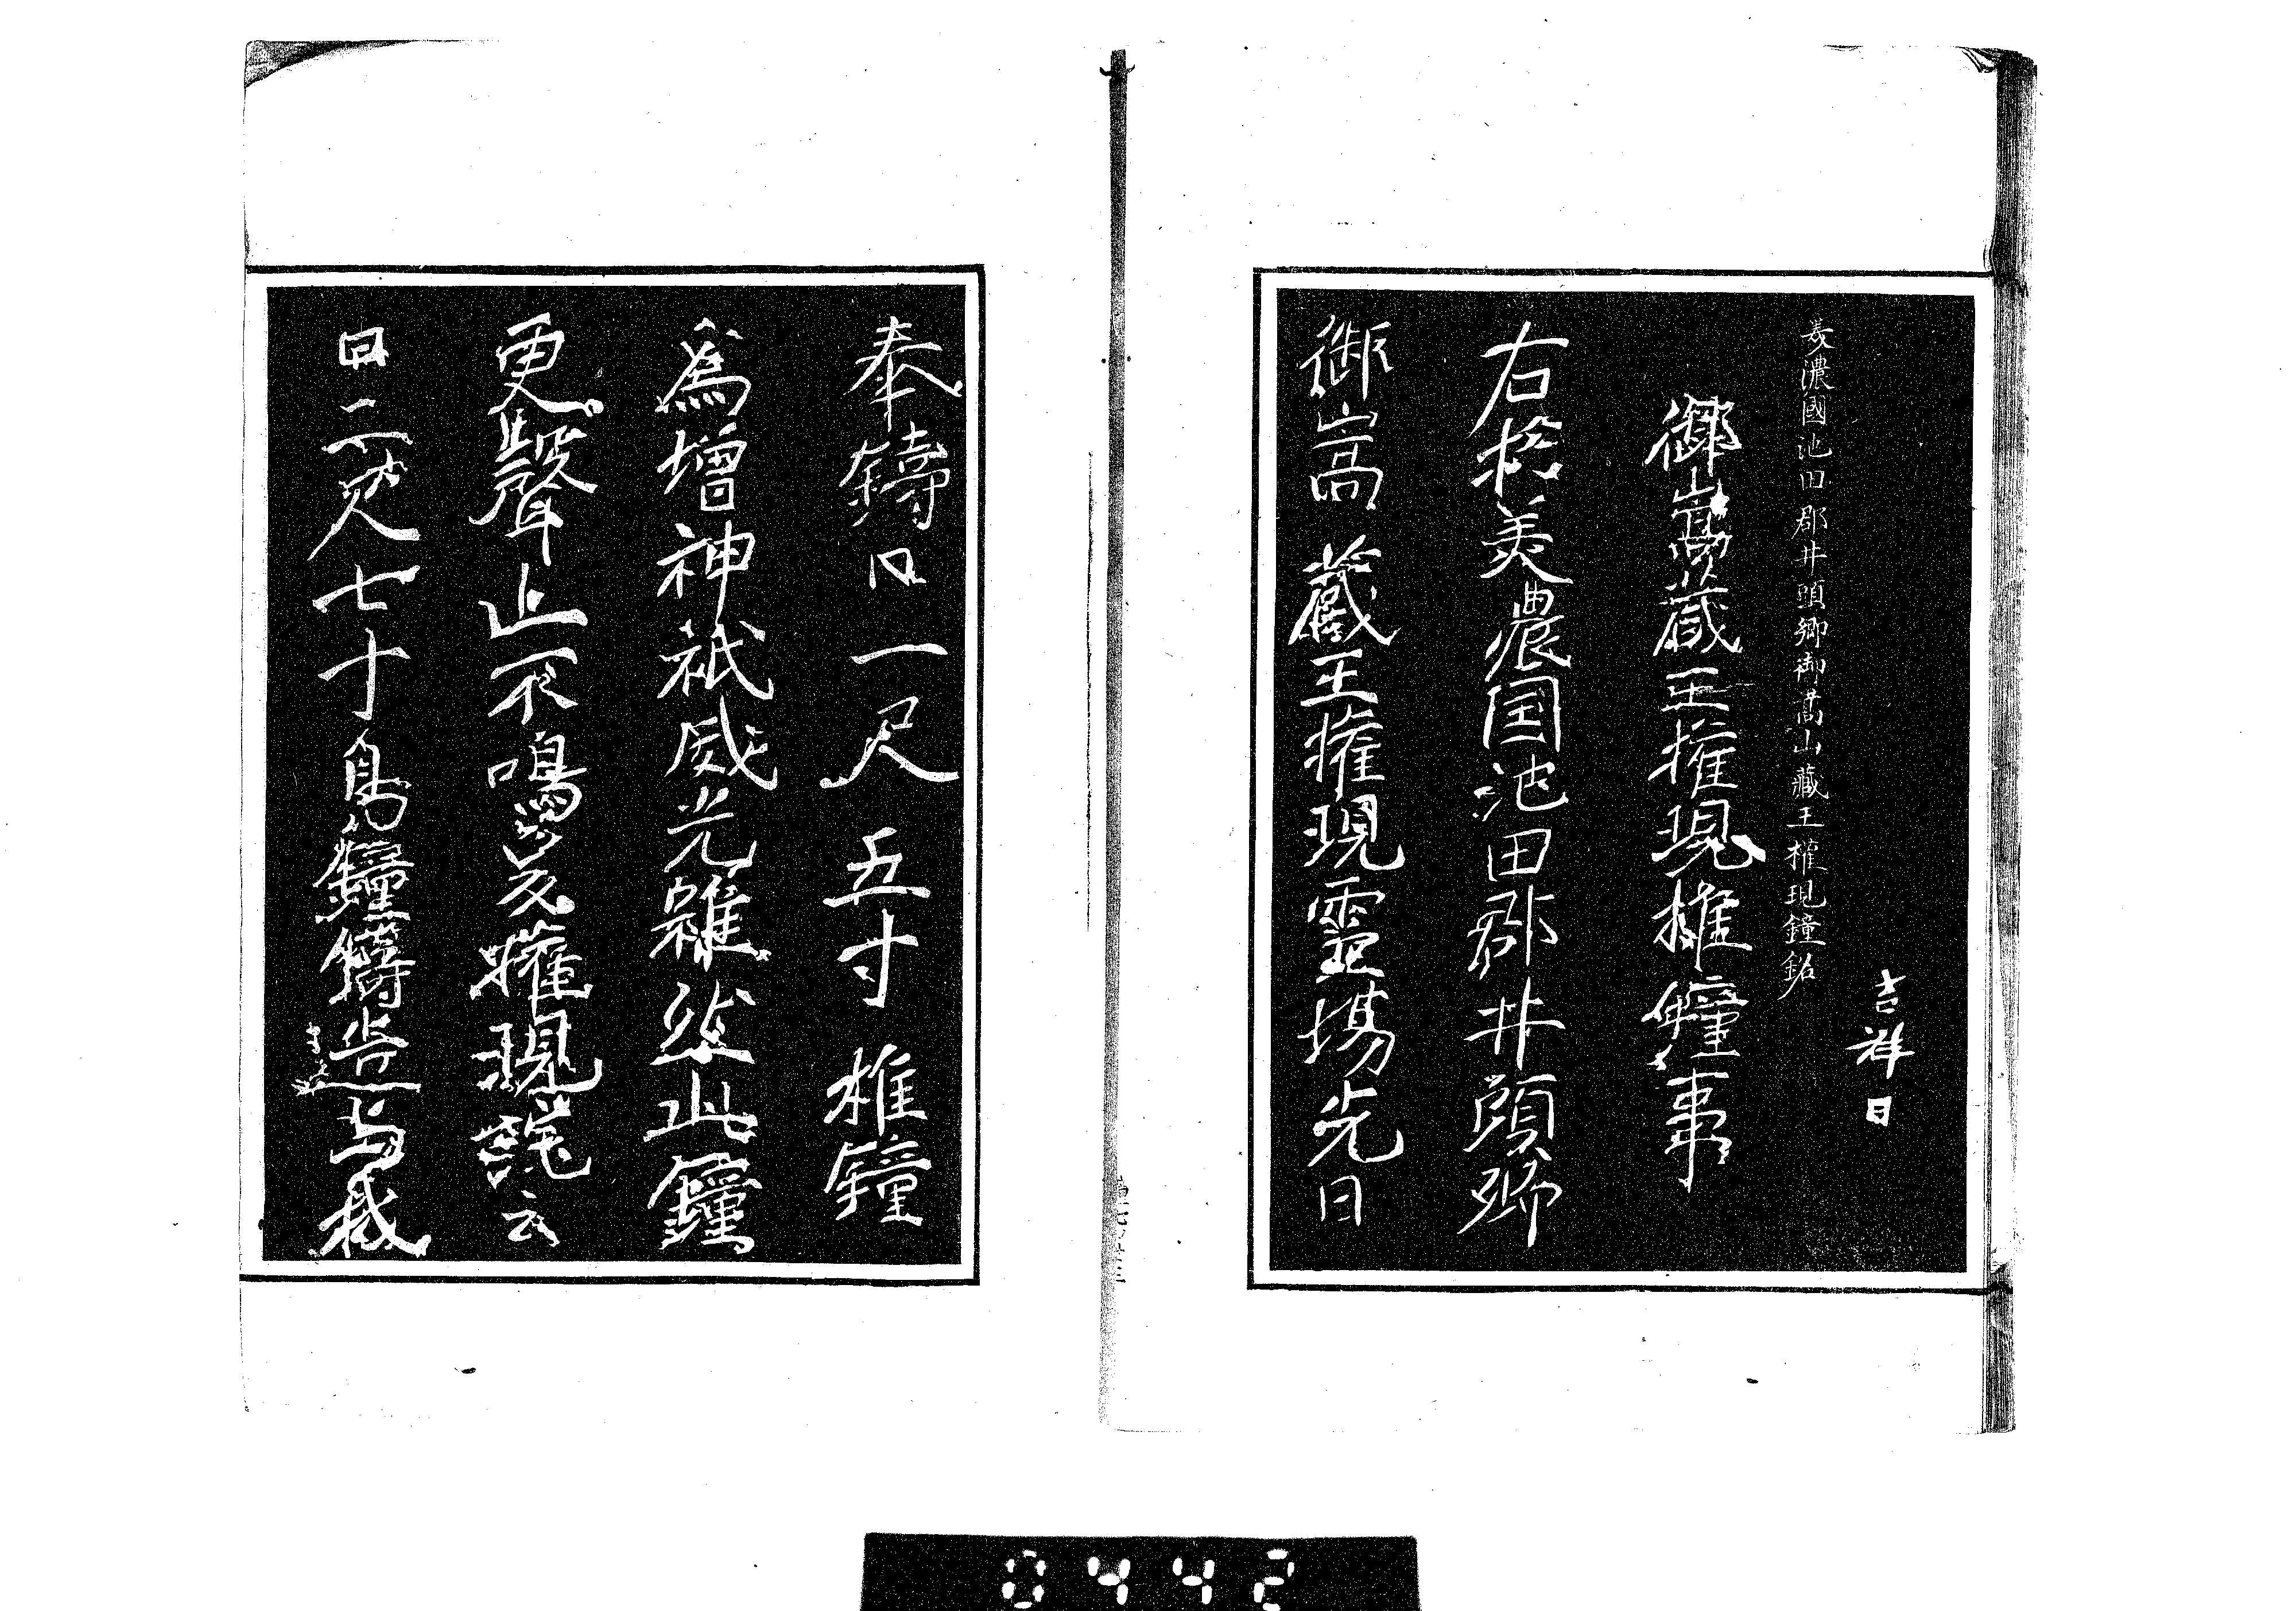 吉祥日
美濃國池田郡井頭鄉御嵩山藏王權現鐘銘
御嵩藏王権現椎鐘事
右於美農国池田郡井頭郷
御嵩藏王権現霊場先日
奉鑄口一尺五寸椎鐘
為増神祇威光雖然此鐘
更聲止不鳴爰権現詫云
口二尺七寸鳥鐘鑄造与